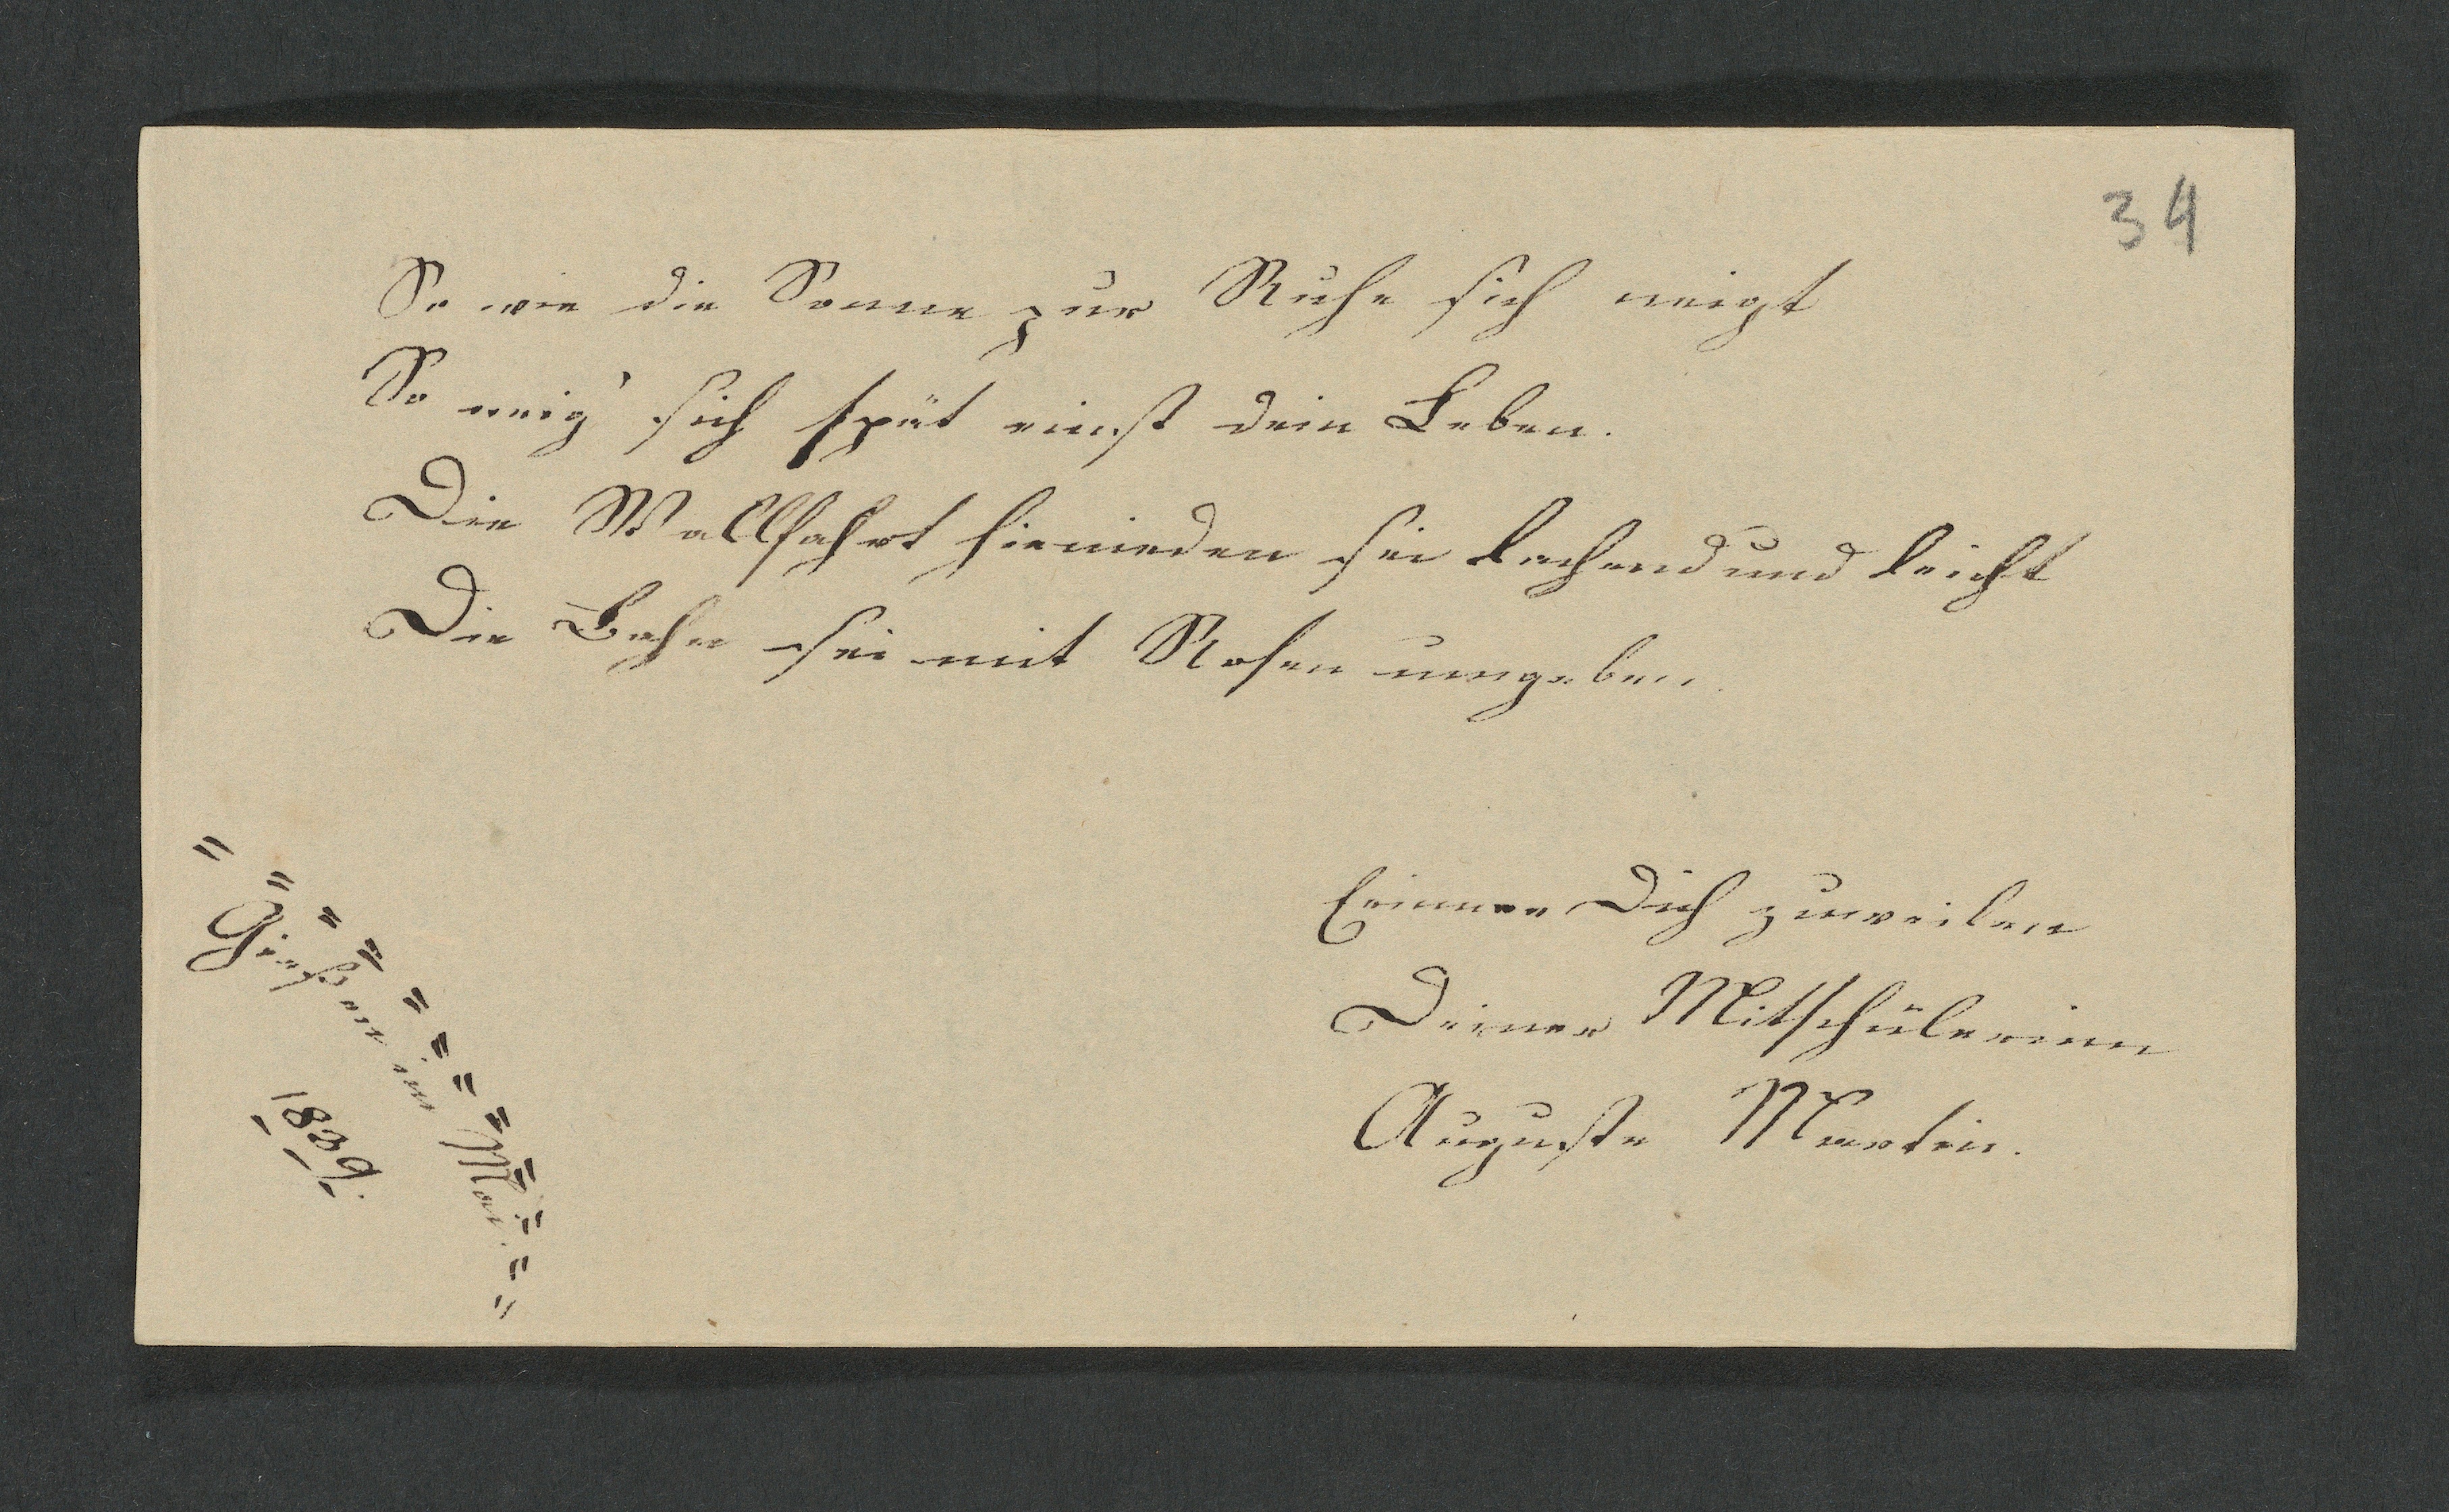 34
So wie die Sonne zur Ruhe sich neigt
So neig' sich spät einst dein Leben.
Die Wallfahrt hienieden sei lachend und leicht
Die Bahn sei mit Rosen umgeben.
Erinnere Dich zuweilen
Deiner Mitschülerinn
Auguste Martin.
Gießen im Mai
1839.